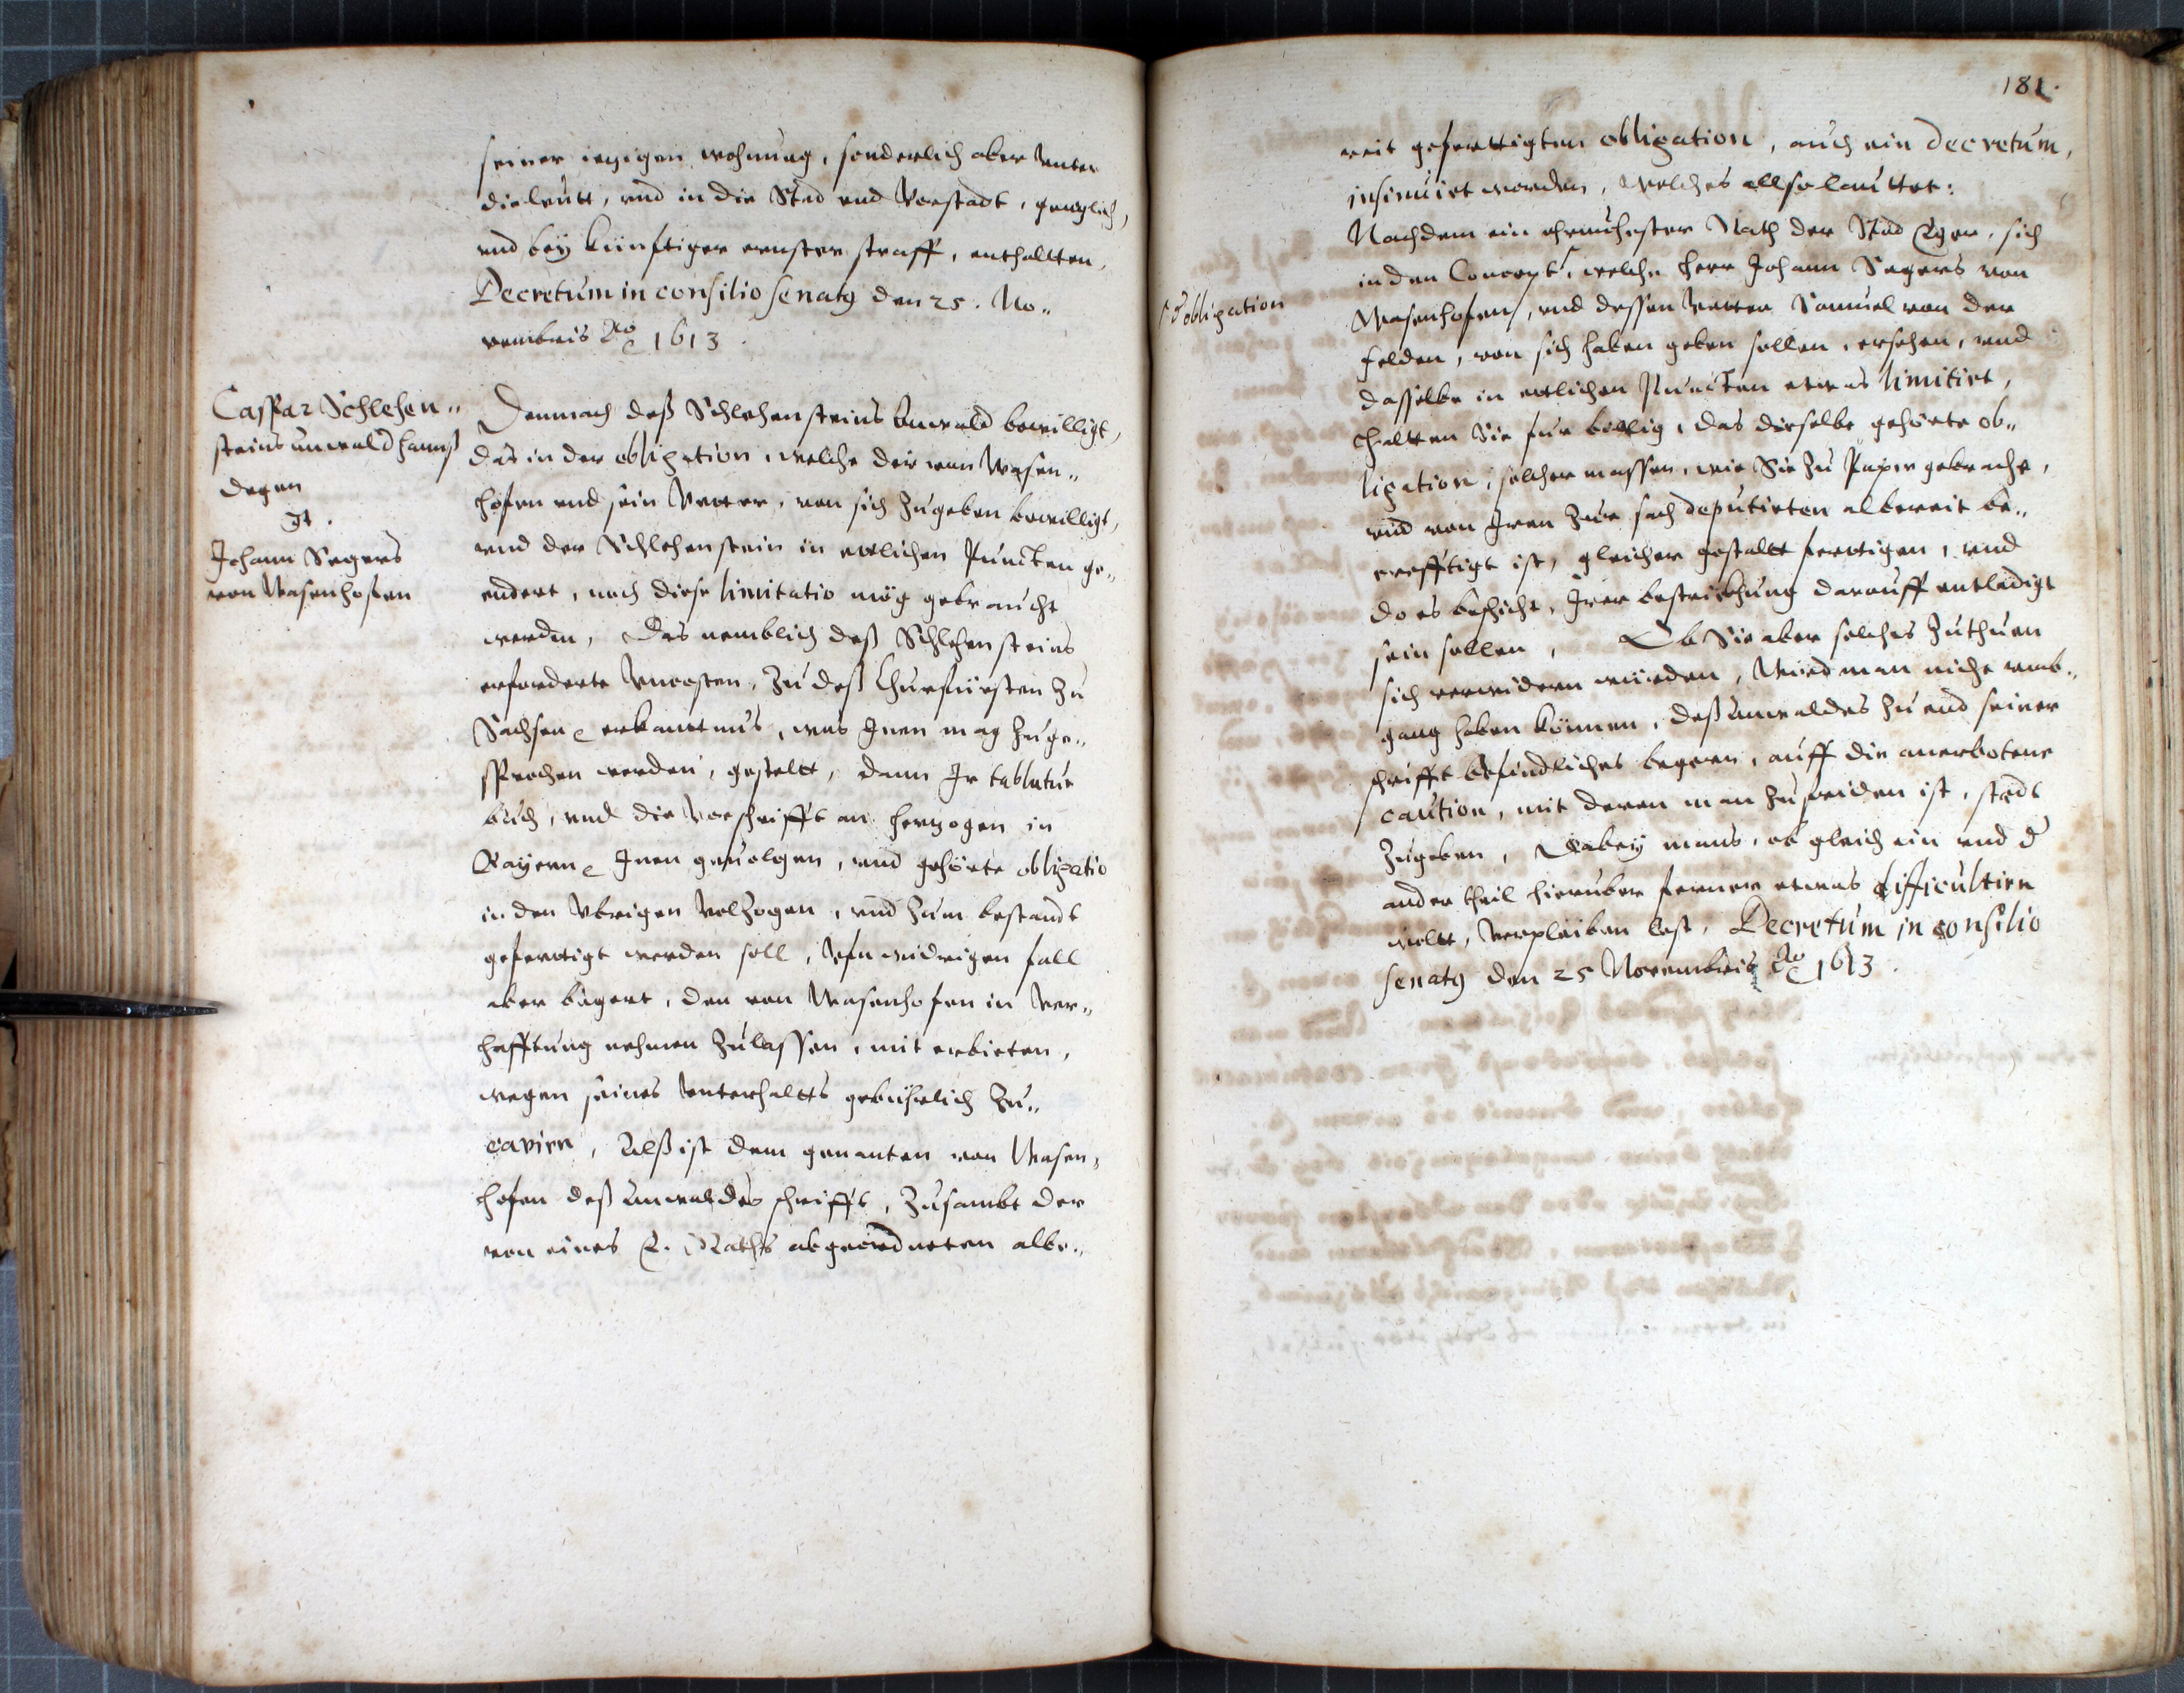 seiner ieczigen wohnung, sonderlich aber Vnter
die leutt, vnd in die Stad vnd Vorstadt, genzlich,
vnd bey künfftiger ernster straff, enthaltten,
Decretum in consilio senatus den 25. No„
vembris Ao 1613.
Caspar Schlehen„
steins anwald hannß
degen
Johann Segers
von Wasenhofen
Demnach deß Schlehensteins Anwald bewilligt,
das in der obligation, welche der von Wasen„
hofen vnd sein Vetter, von sich zu geben bewilligt,
vnd der Schlehenstein in ettlichen Puncten ge„
endert, noch diese limitatio mög gebraucht
werden, Das nemblich deß Schlehensteins
erforderte Vncosten, zu deß Churfürsten zu
Sachsen erkanttnus, was Inen mag zuge„
sprochen werden, gestellt, dann Ir tablatur
buch, vnd die Vorschrifft an herzogen in
Bayern Inen gevolgen, vnd gehörte obligatio
in den Vbrigen Volzogen, vnd zum bestandt
gefertigt werden soll, Vfn widrigen fall
aber begert, den von Wasenhofen in Ver„
hafftung nehmen zulassen, mit erbieten,
wegen seines Vnterhaltts gebührlich zu„
caviren, Alß ist dem genanten von Wasen„
hofen deß Anwaldes schrifft, zusambt der
von eines E. Raths abgeordneten albe„
181.
reit gefertigten obligation, auch ein decretum,
insinuirt worden, welches also lauttet:
Nachdem ein ehrnvhester Rath der Stad Eger, sich
in den Concept, welche herr Johann Segers von
obligation
Wasenhofen, vnd dessen Vetter Samuel von der
felden, von sich haben geben sollen, ersehen, vnd
dasselbe in ettlichen Puncten etwas limitirt,
halten Sie fur billig, das dieselbe gehörte ob„
ligation, solcher massen, wie Sie zu Papir gebracht,
vnd von Iren zur sach deputirten albereit be„
crefftigt ist, gleicher gestaltt fertigen, vnd
do es beschicht, Irer bestrickhung darauff entledigt
sein sollen, Ob Sie aber solches zuthuen
sich verwidern würden, Wird man nicht vmb„
gang haben können, deß Anwaldes zu end seiner
schrifft befindliches begern, auff die anerbotene
caution, mit deren man zufriden ist, stadt
zugeben, Dabey mans, ob gleich ein vnd d
ander theil hieruber ferner etwas difficultirn
woltt, Verpleiben lest, Decretum in consilio
senatus den 25 Novembris Ao 1613.